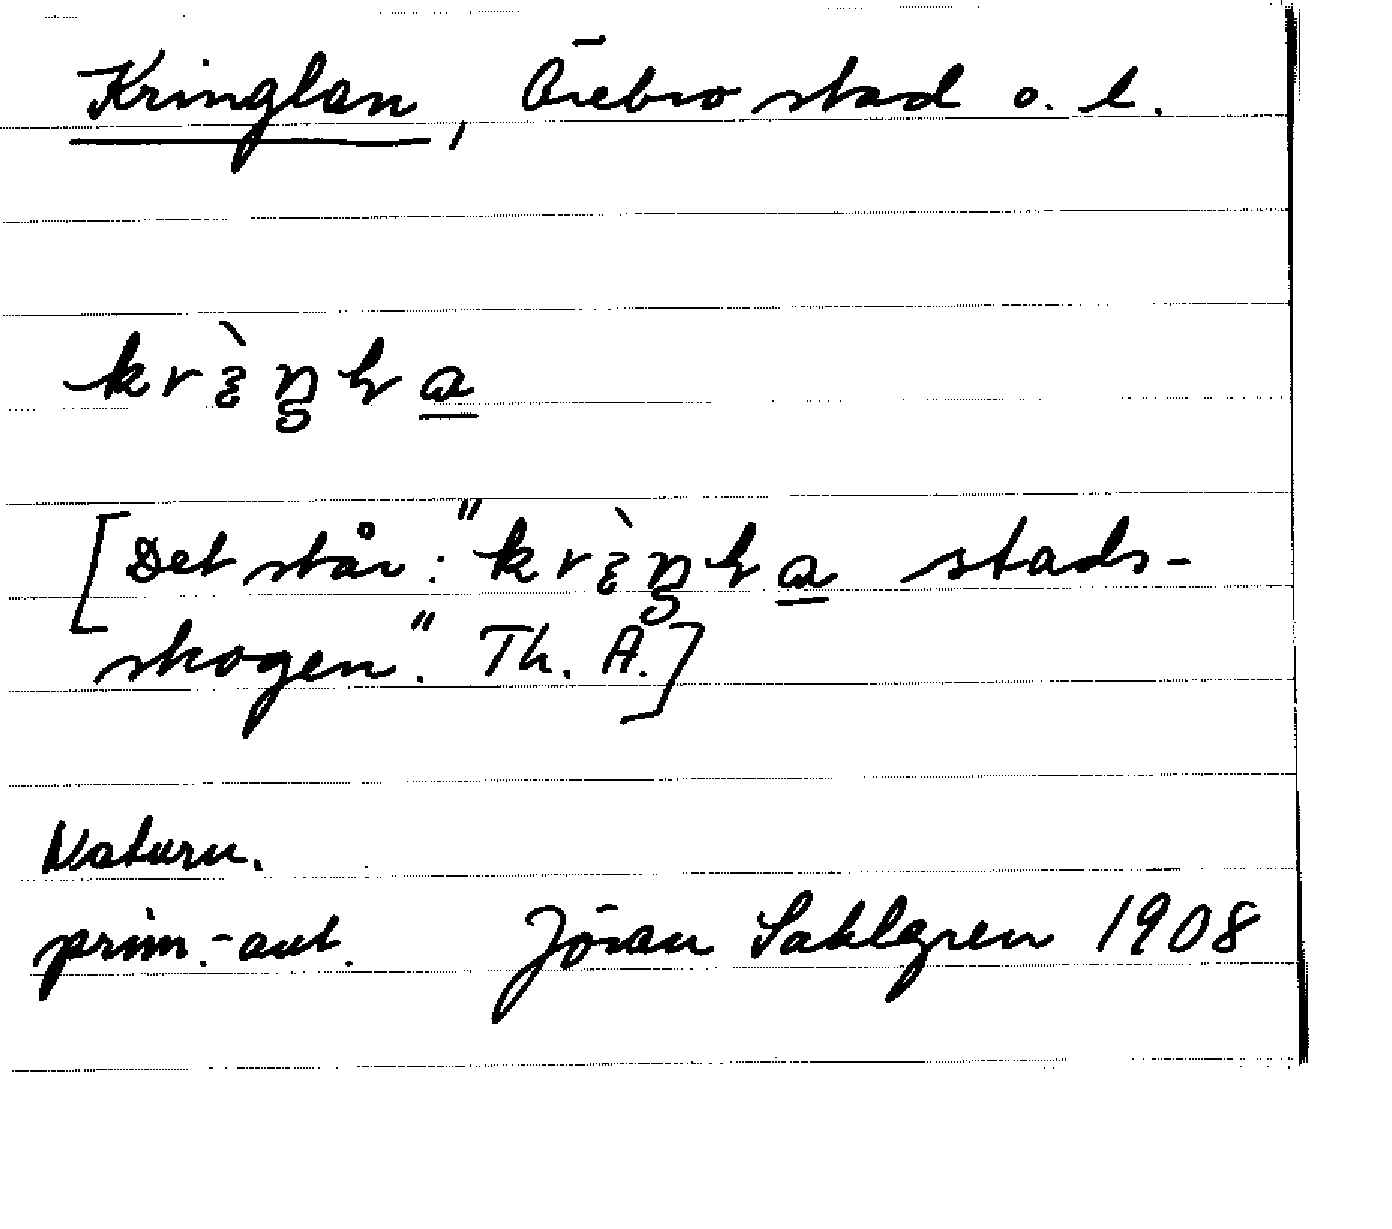 Kringlan, Örebro stad o. l.
[Det står: " stads-
skogen". Th. A.]
Naturn.
prim.-ant. Jöran Sahlgren 1908